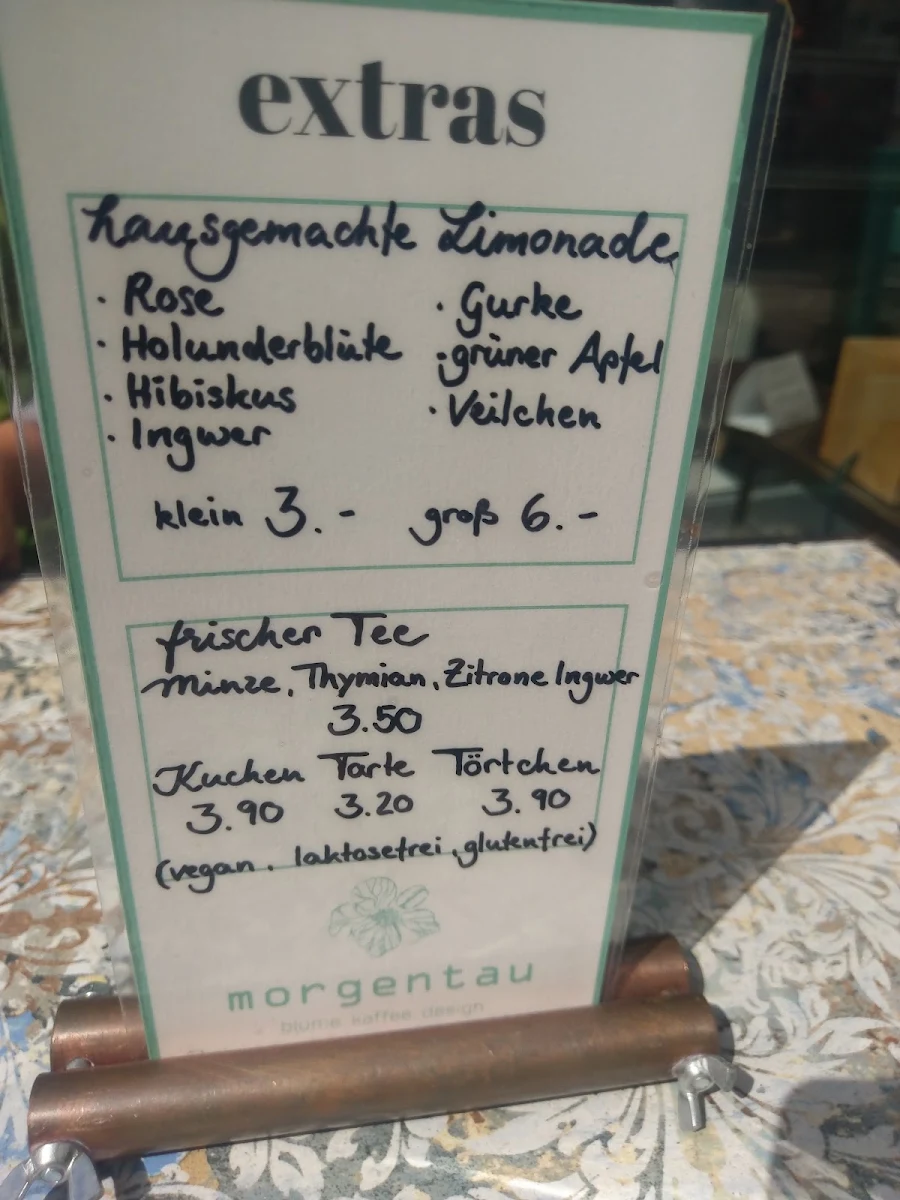 extras
hausgemachte Limonade
· Rose
· Holunderblüte
· Hibiskus
· Ingwer
· Gurke
· grüner Apfel
· Veilchen
klein 3.- groß 6.-
frischer Tee
Minze, Thymian, Zitrone Ingwer
3.50
Kuchen Tarte Törtchen
3.90 3.20 3.90
(vegan, laktosefrei, glutenfrei)
morgentau
blume kaffee design